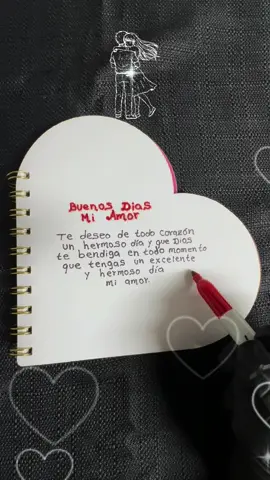 Buenos Dias
Mi Amor
Te deseo de todo corazón
un hermoso día y que Dios
te bendiga en todo momento
que tengas un excelente
y hermoso día
mi amor